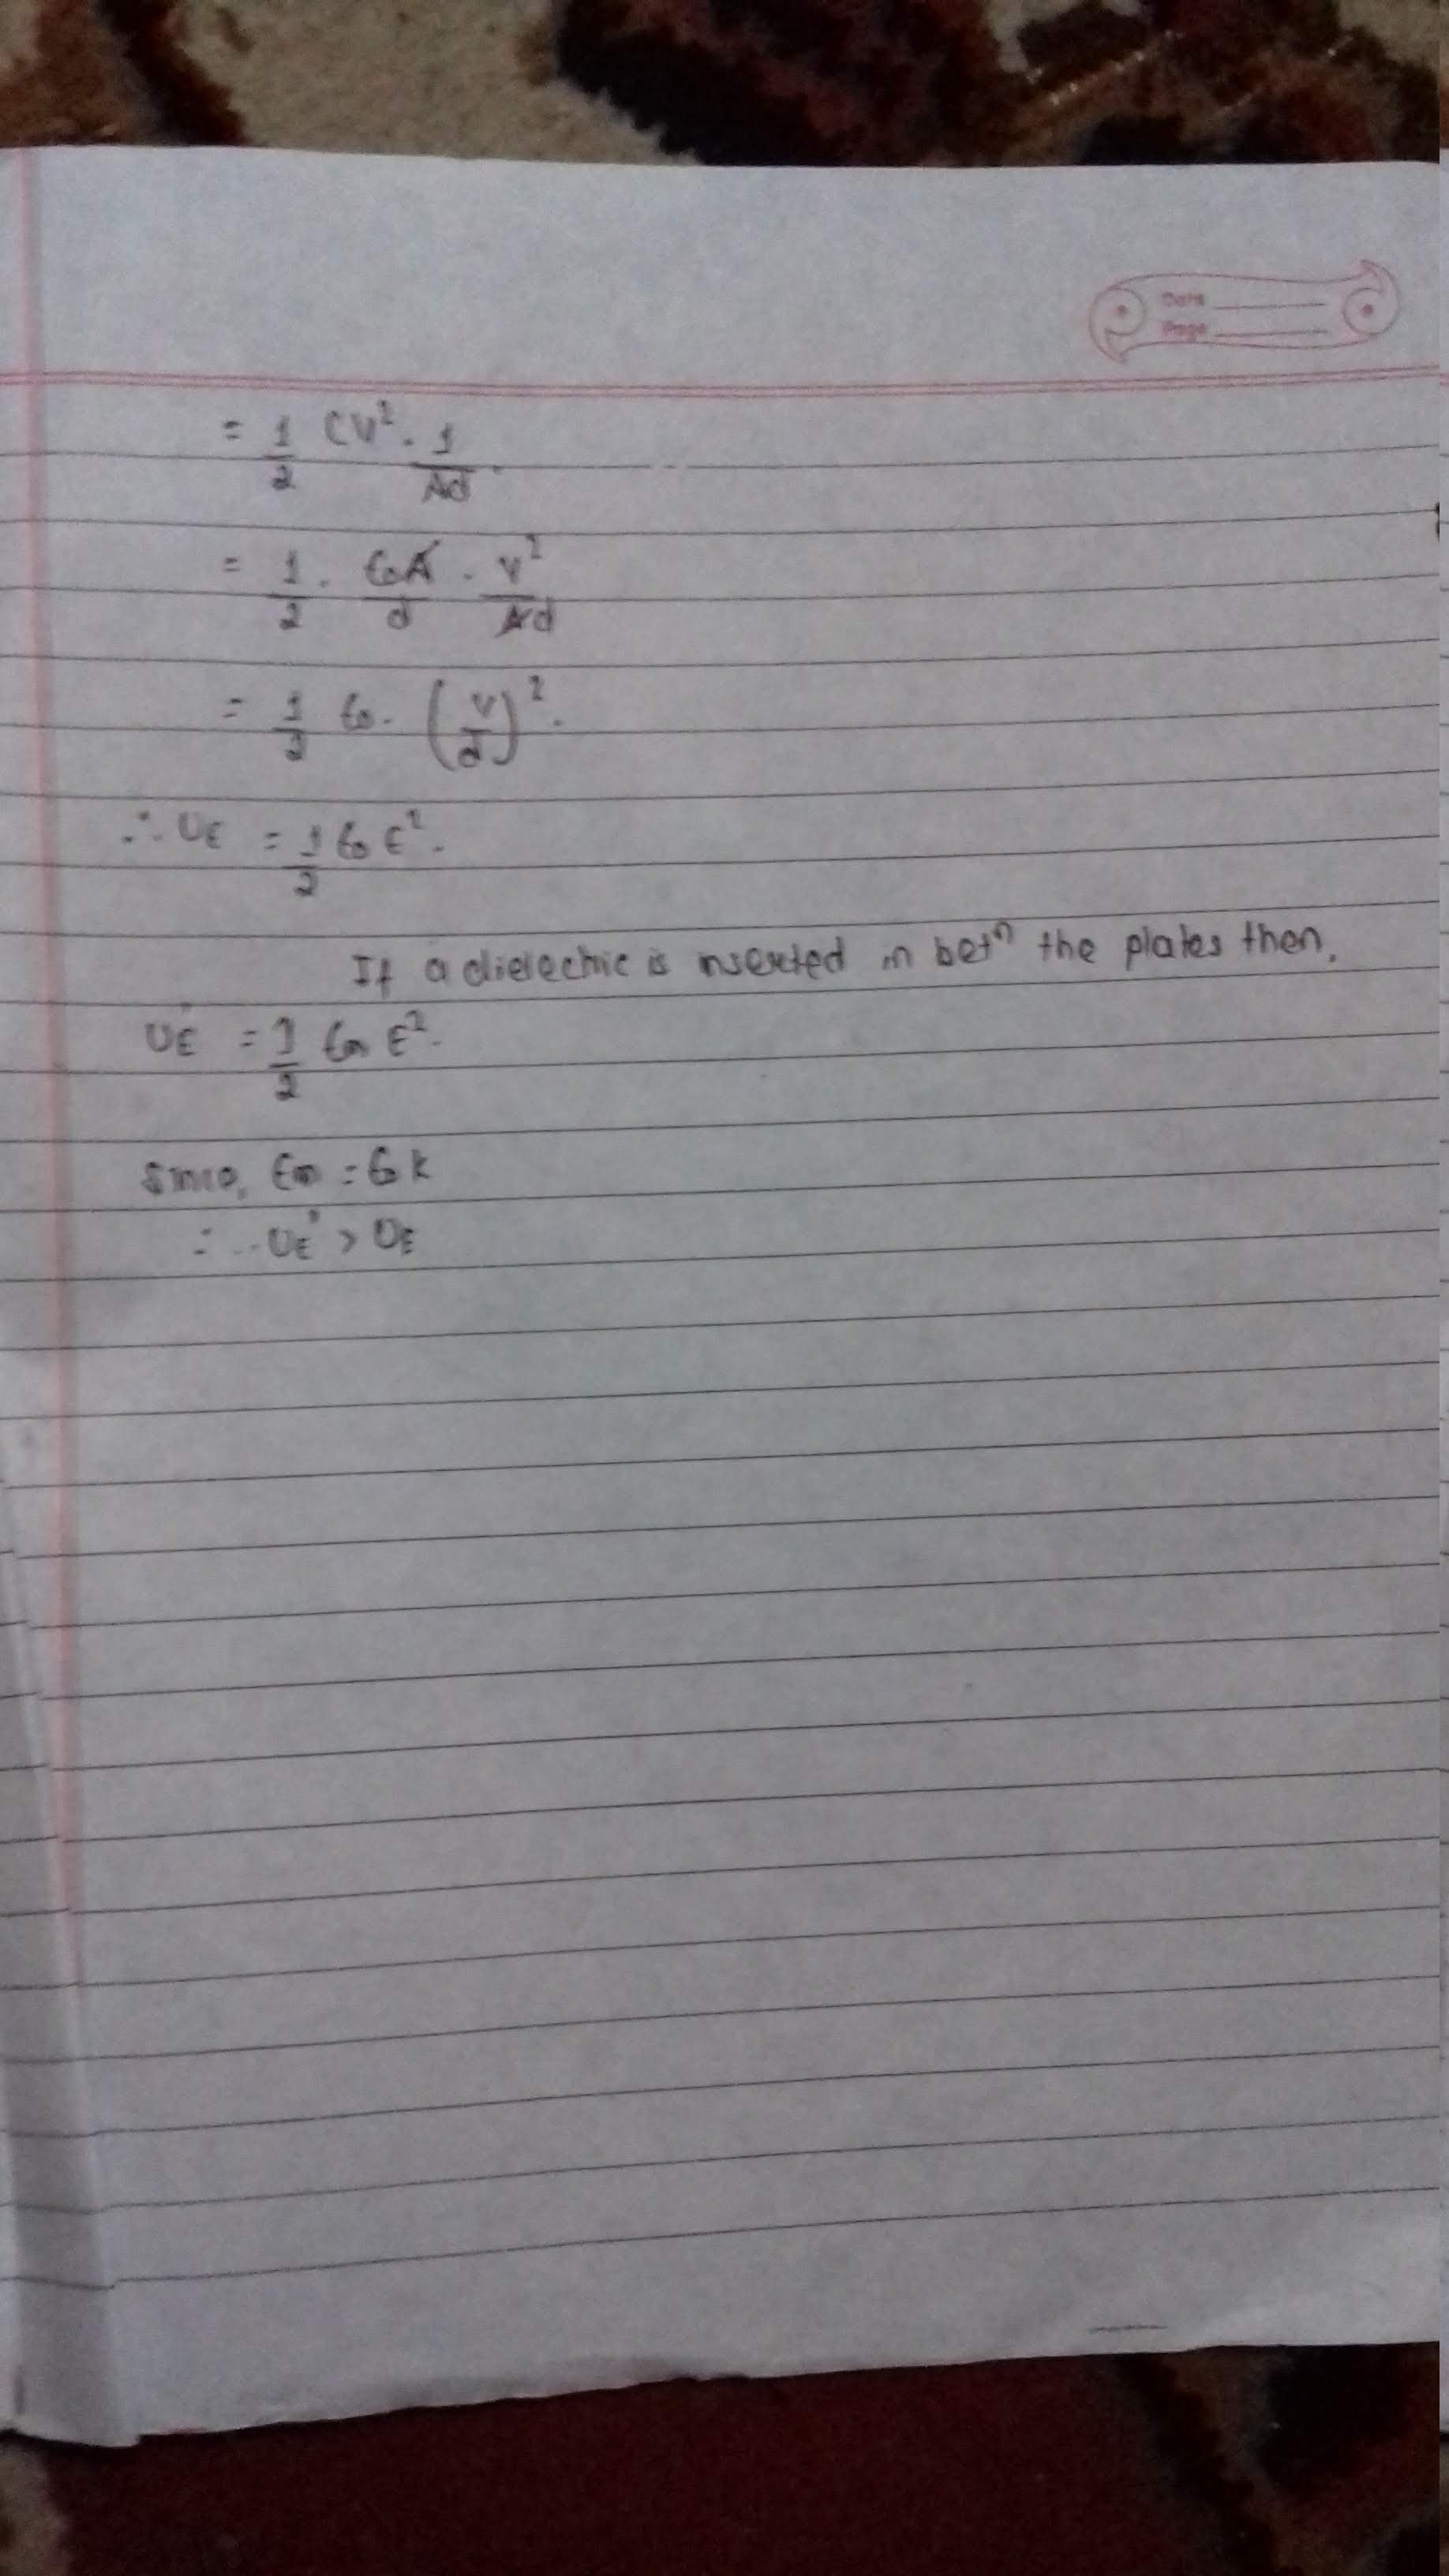 Date
Page
= 1/2 CV² . 1/Ad
= 1/2 . ϵ₀A/d . V²/Ad
= 1/2 ϵ₀ . (V/d)².
∴ UE = 1/2 ϵ₀ E².
If a dielectric is inserted in betⁿ the plates then,
UE' = 1/2 ϵm E².
since, ϵm = ϵ₀k
∴ UE' > UE